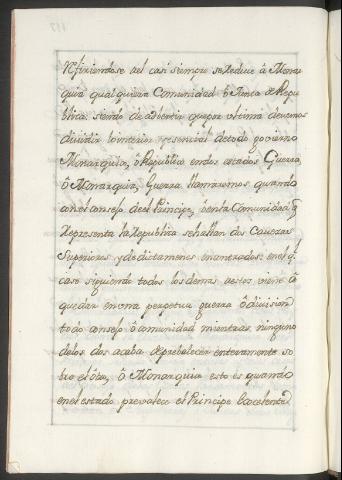 Refiriendose a el casi siempre se reduce â Monar
quia qualquiera Comunidad ô Junta de Repu
blica siendo de advertir que por ultima devemos
dividir lo interior y esencial de todo govierno
Monarquico, ô Republico en dos estados Guerra,
ô Monarquia; Guerra llamaremos quando
en el consejo de el Principe, ô en la Comunidad q̃
representa la Republica se hallan dos Caveras
Superiores, y de dictamenes encontrados; en el ql
caso siguiendo todos los demas a estos viene â
quedar en una perpetua guerra ô division
todo consejo ô comunidad mientras ninguno
de los dos acaba de prebalecer enteramente so
bre el otro, ô Monarquia esto es quando
en el estado prevalece el Principe